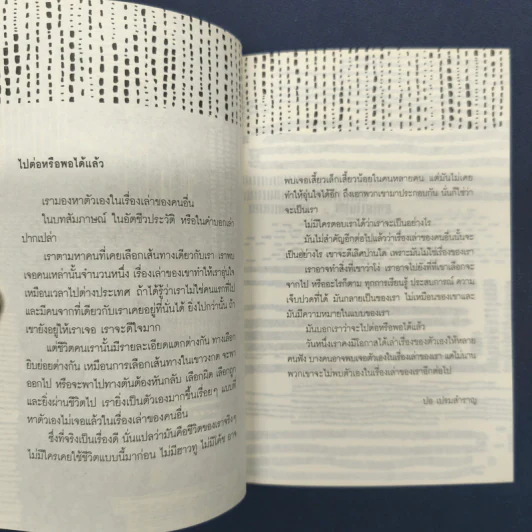 ไปต่อหรือพอได้แล้ว
เรามองหาตัวเองในเรื่องเล่าของคนอื่น
ในบทสัมภาษณ์ ในอัตชีวประวัติ หรือในคำบอกเล่า
ปากเปล่า
เราตามหาคนที่เคยเลือกเส้นทางเดียวกับเรา เราพบ
เจอคนเหล่านั้นจำนวนหนึ่ง เรื่องเล่าของเขาทำให้เราอุ่นใจ
เหมือนเวลาไปต่างประเทศ ถ้าได้รู้ว่าเราไม่ใช่คนแรกที่ไป
และมีคนจากที่เดียวกับเราเคยอยู่ที่นั่นได้ ยิ่งไปกว่านั้น ถ้า
เขายังอยู่ให้เราเจอ เราจะดีใจมาก
แต่ชีวิตคนเรานั้นมีรายละเอียดแตกต่างกัน ทางเลือก
ยิบย่อยต่างกัน เหมือนการเลือกเส้นทางในเขาวงกต จะพา
ออกไป หรือจะพาไปทางตันต้องหันกลับ เลือกผิด เลือกถูก
และยิ่งผ่านชีวิตไป เรายิ่งเป็นตัวเองมากขึ้นเรื่อยๆ แบบที่
หาตัวเองไม่เจอแล้วในเรื่องเล่าของคนอื่น
ซึ่งที่จริงเป็นเรื่องดี นั่นแปลว่ามันคือชีวิตของเราจริงๆ
ไม่มีใครเคยใช้ชีวิตแบบนี้มาก่อน ไม่มีฮาวทู ไม่มีโค้ช อาจ
พบเจอเสี้ยวเล็กเสี้ยวน้อยในคนหลายคน แต่มันไม่เคย
ทำให้อุ่นใจได้อีก ถึงเอาพวกเขามาประกอบกัน นั่นก็ใช่ว่า
จะเป็นเรา
ไม่มีใครตอบเราได้ว่าเราจะเป็นอย่างไร
มันไม่สำคัญอีกต่อไปแล้วว่าเรื่องเล่าของคนอื่นนั้นจะ
เป็นอย่างไร เขาจะดีเลิศปานใด เพราะมันไม่ใช่เรื่องของเรา
เราอาจทำสิ่งที่เขาว่าโง่ เราอาจไปยังที่ที่เขาเลือกจะ
จากไป หรืออะไรก็ตาม ทุกการเรียนรู้ ประสบการณ์ ความ
เจ็บปวดที่ได้ มันกลายเป็นของเรา ไม่เหมือนของเขาและ
มันมีความหมายในแบบของเรา
มันบอกเราว่าจะไปต่อหรือพอได้แล้ว
วันหนึ่งเราคงมีโอกาสได้เล่าเรื่องของตัวเองให้หลาย
คนฟัง บางคนอาจพบเจอตัวเองในเรื่องของเรา แต่ไม่นาน
พวกเขาจะไม่พบตัวเองในเรื่องของเราอีกต่อไป
ปอ เปรมสำราญ